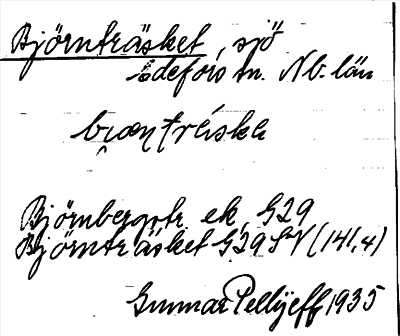 Björnträsket, sjö
Edefors sn. Nb. län
Björnbergstr. ek. G29
Björnträsket G29 SV (141,4)
Gunnar Pellijeff 1935